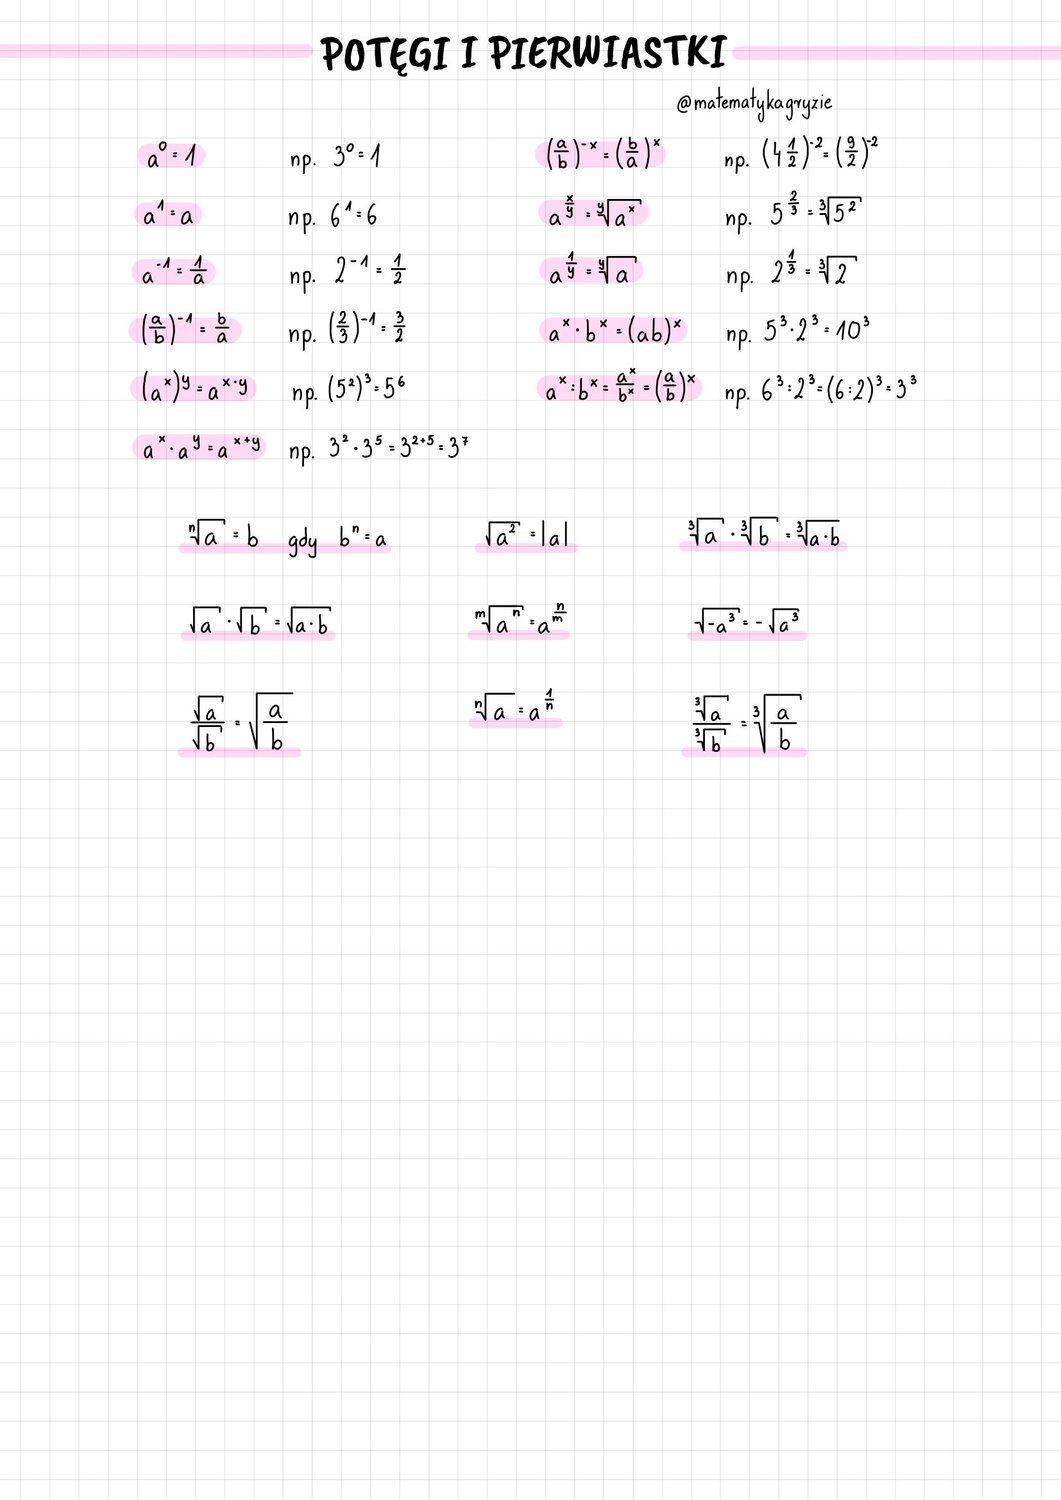 POTĘGI I PIERWIASTKI
@matematykagryzie
a⁰ = 1 np. 3⁰ = 1
a¹ = a np. 6¹ = 6
a⁻¹ = 1/a np. 2⁻¹ = 1/2
(a/b)⁻¹ = b/a np. (2/3)⁻¹ = 3/2
(a^x)^y = a^(x·y) np. (5²)³ = 5⁶
a^x · a^y = a^(x+y) np. 3² · 3⁵ = 3²⁺⁵ = 3⁷
(a/b)^(-x) = (b/a)^x np. (4 1/2)⁻² = (9/2)⁻²
a^(x/y) = ʸ√(a^x) np. 5^(2/3) = ³√(5²)
a^(1/y) = ʸ√a np. 2^(1/3) = ³√2
a^x · b^x = (ab)^x np. 5³ · 2³ = 10³
a^x : b^x = a^x/b^x = (a/b)^x np. 6³ : 2³ = (6 : 2)³ = 3³
ⁿ√a = b gdy bⁿ = a
√(a²) = |a|
³√a · ³√b = ³√(a·b)
√a · √b = √(a·b)
ᵐ√(aⁿ) = a^(n/m)
√(-a³) = -√(a³)
√a/√b = √(a/b)
ⁿ√a = a^(1/n)
³√a/³√b = ³√(a/b)